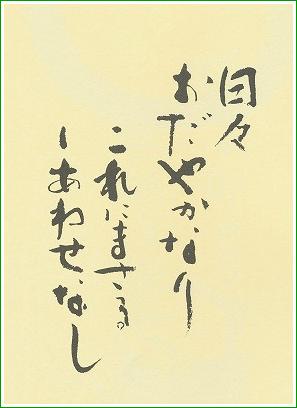 日々
おだやかなり
これにまさる
しあわせなし